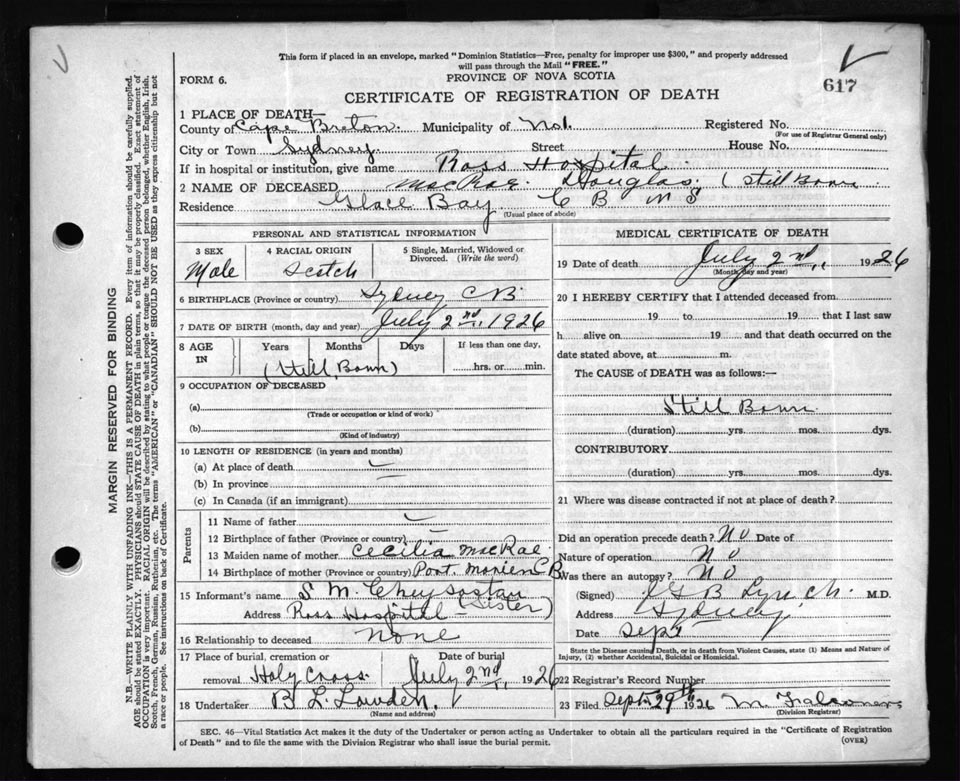 This form if placed in an envelope, marked "Dominion Statistics—Free, penalty for improper use $300," and properly addressed
will pass through the Mail "FREE."
FORM 6.
PROVINCE OF NOVA SCOTIA
617
CERTIFICATE OF REGISTRATION OF DEATH
1 PLACE OF DEATH—
County of Cape Breton. Municipality of No1. Registered No.
(For use of Registrar General only)
City or Town Sydney. Street House No.
If in hospital or institution, give name Ross Hospital.
2 NAME OF DECEASED MacRae Douglas, (Still Born
Residence Glace Bay C B N S
(Usual place of abode)
PERSONAL AND STATISTICAL INFORMATION
3 SEX 4 RACIAL ORIGIN 5 Single, Married, Widowed or
Divorced. (Write the word)
Male Scotch
6 BIRTHPLACE (Province or country) Sydney C B
7 DATE OF BIRTH (month, day and year) July 2nd, 1926
8 AGE IN Years Months Days If less than one day,
hrs. or min.
(Still Born)
9 OCCUPATION OF DECEASED
(a)
(Trade or occupation or kind of work)
(b)
(Kind of industry)
10 LENGTH OF RESIDENCE (in years and months)
(a) At place of death
(b) In province
(c) In Canada (if an immigrant)
Parents
11 Name of father
12 Birthplace of father (Province or country)
13 Maiden name of mother Cecilia MacRae
14 Birthplace of mother (Province or country) Port. Morien C B
15 Informant's name S M Chrysostan
Address Ross Hospital (Sister)
16 Relationship to deceased none
17 Place of burial, cremation or Date of burial
removal Holy Cross July 2nd, 1926
18 Undertaker B L. Lowden
(Name and address)
MEDICAL CERTIFICATE OF DEATH
19 Date of death July 2nd, 1926
(Month, day and year)
20 I HEREBY CERTIFY that I attended deceased from
19 to 19 that I last saw
h alive on 19 and that death occurred on the
date stated above, at m.
The CAUSE of DEATH was as follows:—
Still Born
(duration) yrs. mos. dys.
CONTRIBUTORY
(duration) yrs. mos. dys.
21 Where was disease contracted if not at place of death?
Did an operation precede death? No Date of
Nature of operation No
Was there an autopsy? No
(Signed) J G B Lynch. M.D.
Address Sydney
Date Sept
State the Disease causing Death, or in death from Violent Causes, state (1) Means and Nature of
Injury, (2) whether Accidental, Suicidal or Homicidal.
22 Registrar's Record Number
23 Filed Sept. 29th 1926 M.
(Division Registrar)
SEC. 46—Vital Statistics Act makes it the duty of the Undertaker or person acting as Undertaker to obtain all the particulars required in the "Certificate of Registration
of Death" and to file the same with the Division Registrar who shall issue the burial permit.
(OVER)
MARGIN RESERVED FOR BINDING
N.B.—WRITE PLAINLY WITH UNFADING INK—THIS IS A PERMANENT RECORD. Every item of information should be carefully supplied.
AGE should be stated EXACTLY. PHYSICIANS should STATE CAUSE OF DEATH in plain terms, so that it may be properly classified. Exact statement of
OCCUPATION is very important. RACIAL ORIGIN will be described by stating to what people or tongue the deceased person belonged, whether English, Irish,
Scotch, French, German, Russian, Ruthenian, etc. The terms "AMERICAN" or "CANADIAN" SHOULD NOT BE USED as they express citizenship but not
a race or people. See instructions on back of Certificate.